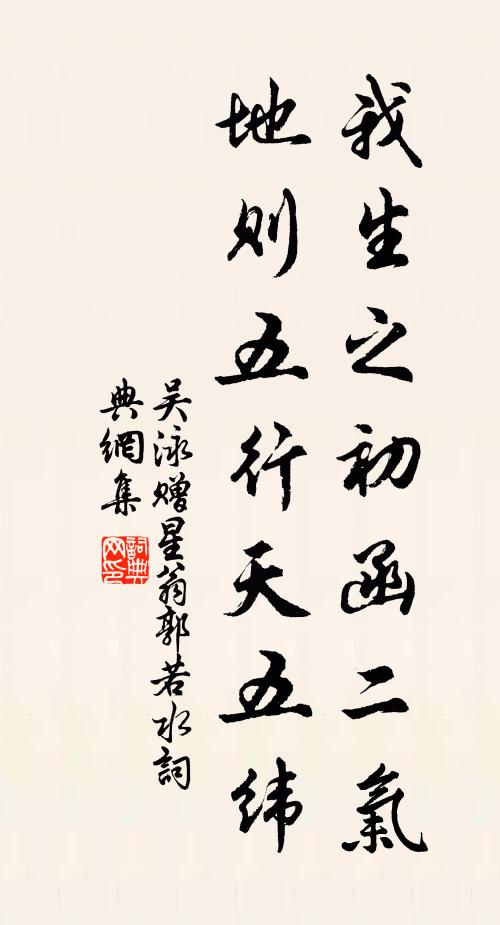 我生之初函二氣
地则五行天五緯
吴泳赠星翁郭若水詞
典網集
詞典
网印